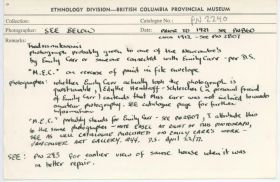 ETHNOLOGY DIVISION—BRITISH COLUMBIA PROVINCIAL MUSEUM
Collection: Catalogue No.: PN 2240
Photographer: SEE BELOW Date: PRIOR TO 1929 SEE
Remarks: CIRCA 1912 - SEE PN 2807
photograph probably given to one of the Newcombe's
by Emily Carr or someone connected with Emily Carr - per D.S.
"M.E.C." on reverse of print in file envelope
photographer: whether Emily Carr actually took the photograph is
questionable, (Edythe Hembroff - Schleicher (a personal friend
of Emily Carr) contends that Miss Carr was not inclined towards
amateur photography. SEE catalogue page for further
information.
"M.E.C." probably stands for Emily Carr - SEE PN 2807, I attribute this
to the same photographer - NOTE
SEE AS WELL CATALOGUE PUBLISHED ON EMILY CARR'S WORK -
VANCOUVER ART GALLERY, 1974. D.S. April
SEE: PN 283 for earlier view of same house when it was
in better repair.